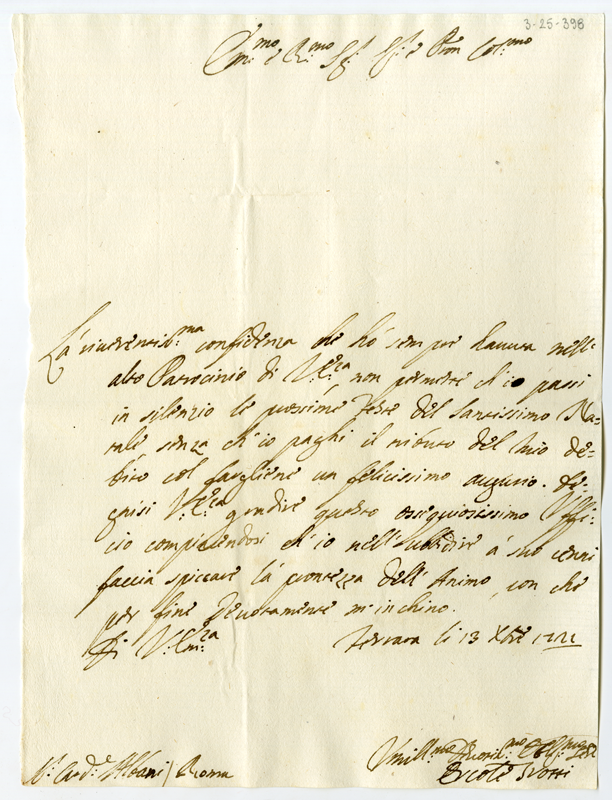 3-25-398
Em.mo e R.mo Sig.r Sig.r e Pron Col.mo
La riverentis.ma confidenza che hò sempre havuta nell'
alto Patrocinio di V.Em.za non permette ch'io passi
in silenzio le prossime Feste del Santissimo Na-
tale, senza ch'io paghi il tributo del mio de-
bito col fargliene un felicissimo augurio. De-
gnisi V.Em.za gradire questo ossequiosissimo Offi-
cio compiacendosi ch'io nell'ubbidire à suoi cenni
faccia spiccare la prontezza dell'Animo, con che
per fine devotamente m'inchino.
Di V.Em.za Ferrara li 13 Xbre
Umill.mo Devotis.mo Obl.mo
Ercole Trotti
Card.e Albani / Roma